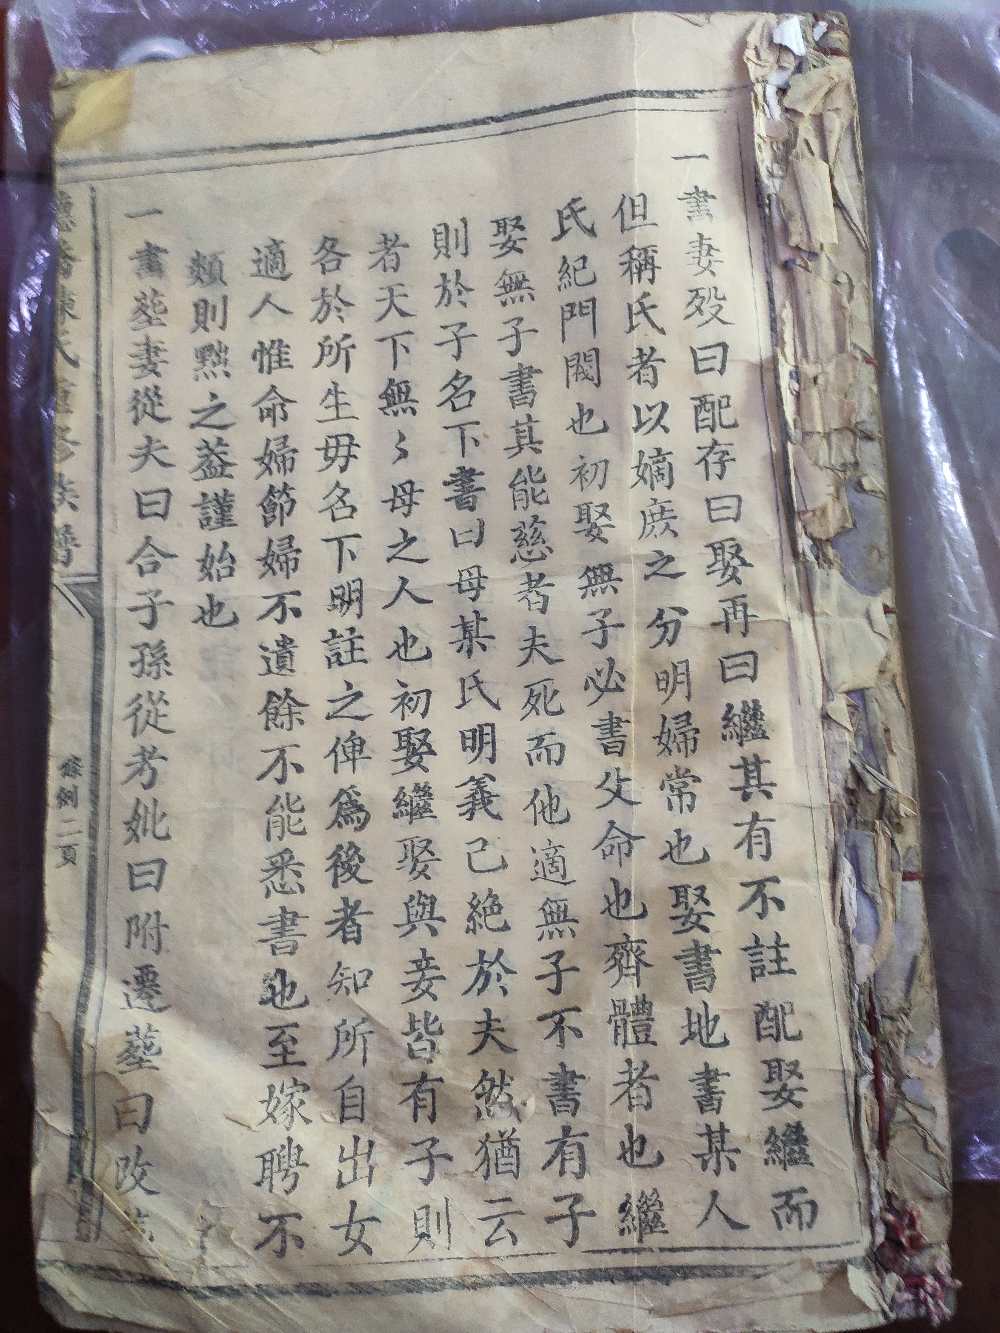 一書妻歿曰配存曰娶再曰繼其有不註配娶繼而
但稱氏者以嫡庶之分明婦常也娶書地書某人
氏紀門閥也初娶無子必書父命也齊體者也繼
娶無子書其能慈者夫死而他適無子不書有子
則於子名下書曰母某氏明義已絶於夫然猶云
者天下無〻母之人也初娶繼娶與妾皆有子則
各於所生毋名下明註之俾爲後者知所自出女
適人惟命婦節婦不遺餘不能悉書也至嫁聘不
類則黙之葢謹始也
一書塟妻從夫曰合子孫從考妣曰附遷塟曰改
陳氏重修族譜
條例二頁